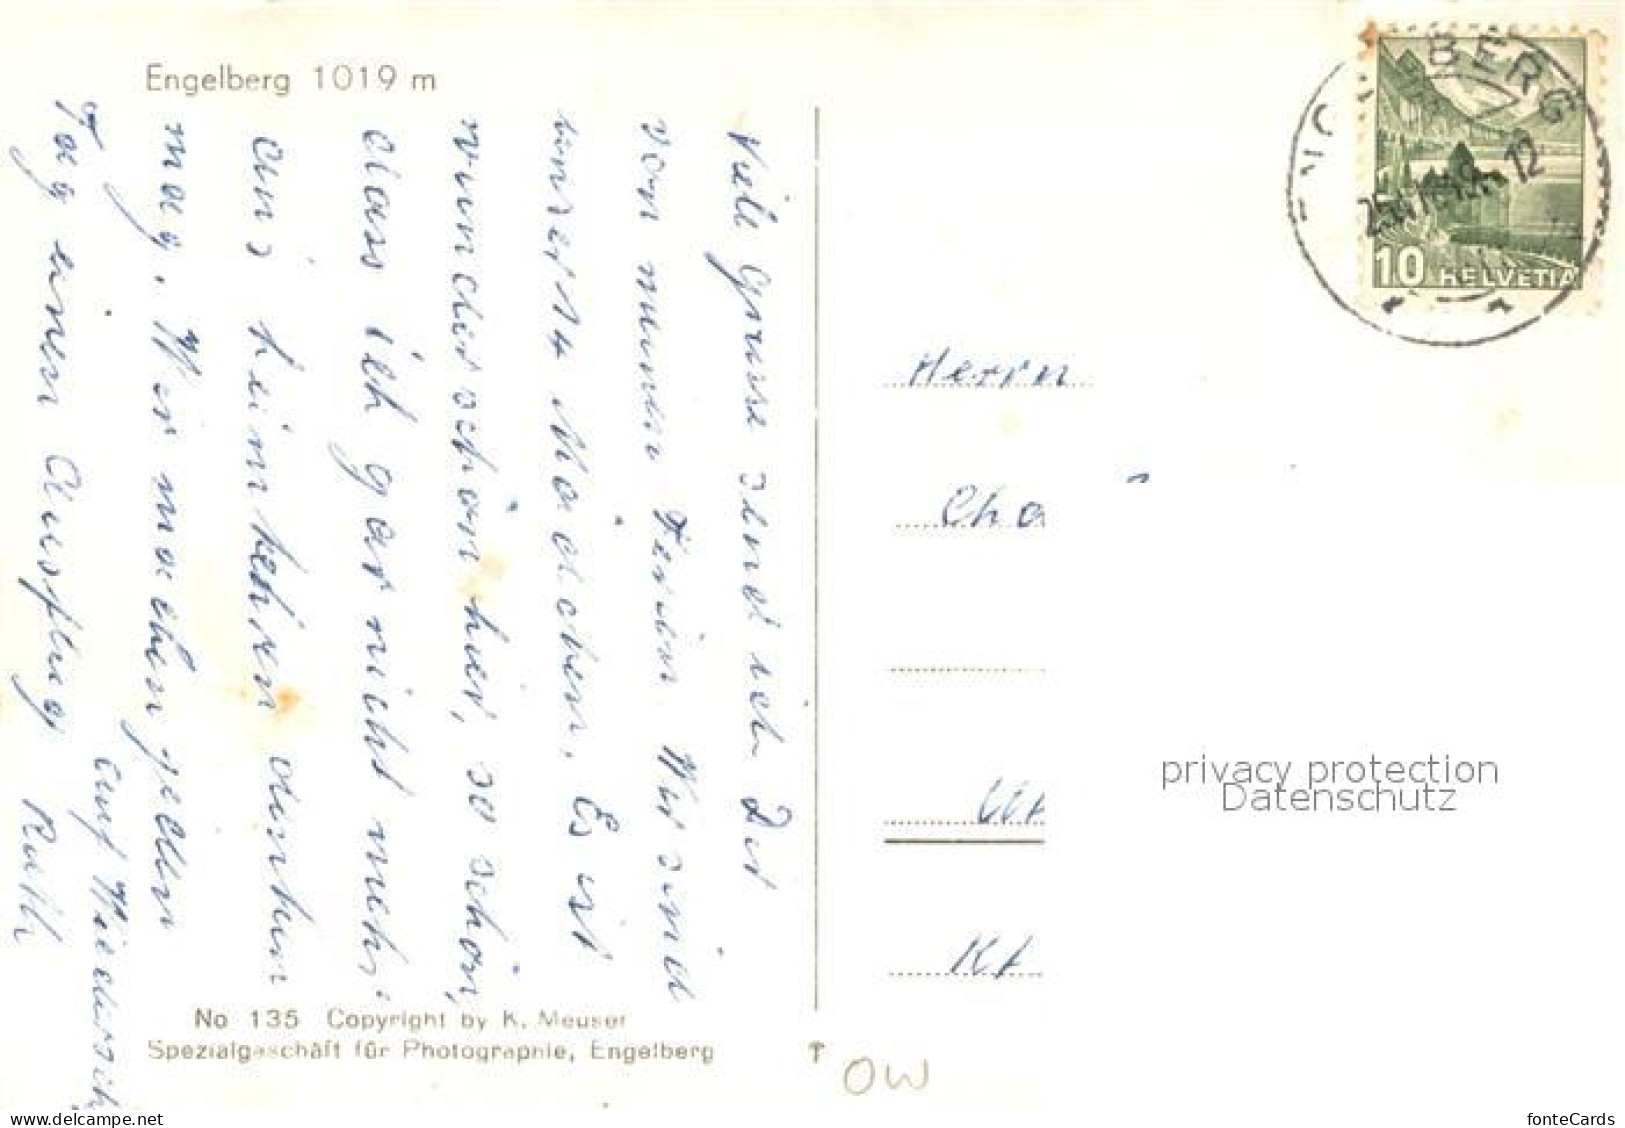 Engelberg 1019 m
Viele Grüsse send ich Dir
von meinen Ferien. Wir sind
Mädchen. Es ist
wunderschön hier, so schön,
dass ich gar nicht mehr
ans heimkehren denken
mag. Wir machen jeden
Tag einen Ausflug
auf Wiedersich
Ruth
No 135 Copyright by K. Meuser
Spezialgeschäft für Photographie, Engelberg
ENGELBERG
12
10 HELVETIA
Herrn
Cha
Kt
privacy protection
Datenschutz
OW
www.delcampe.net
fonteCards